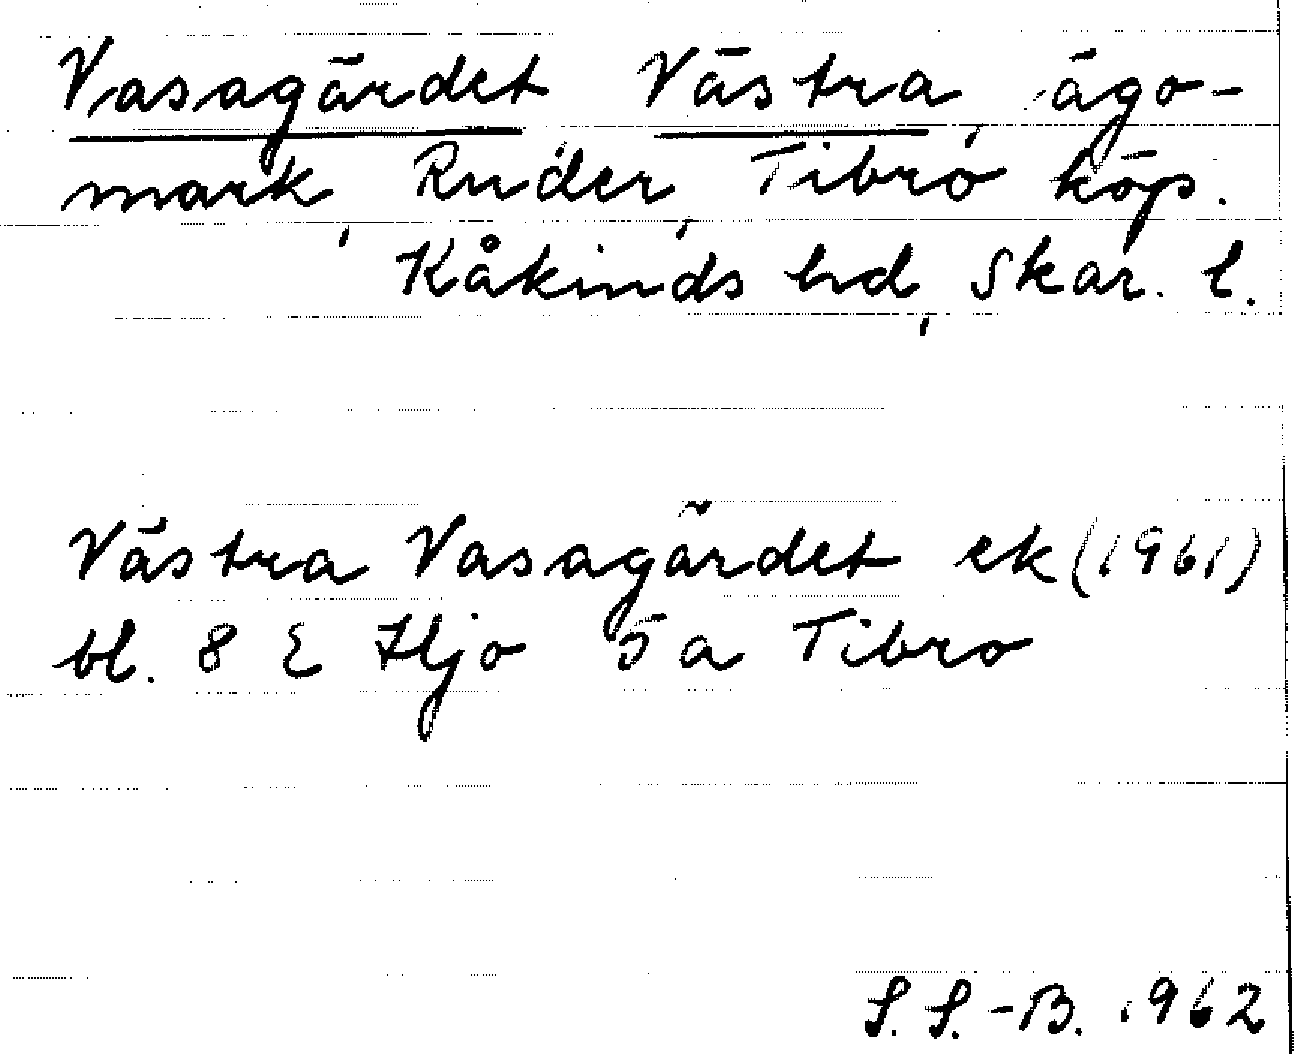 Vasagärdet Västra, ägo-
mark, Ruder, Tibro köp.
Kåkinds hd, Skar. l.
Västra Vasagärdet ek (1961)
bl. 8 E Hjo 5 a Tibro
S. S.-B. 1962